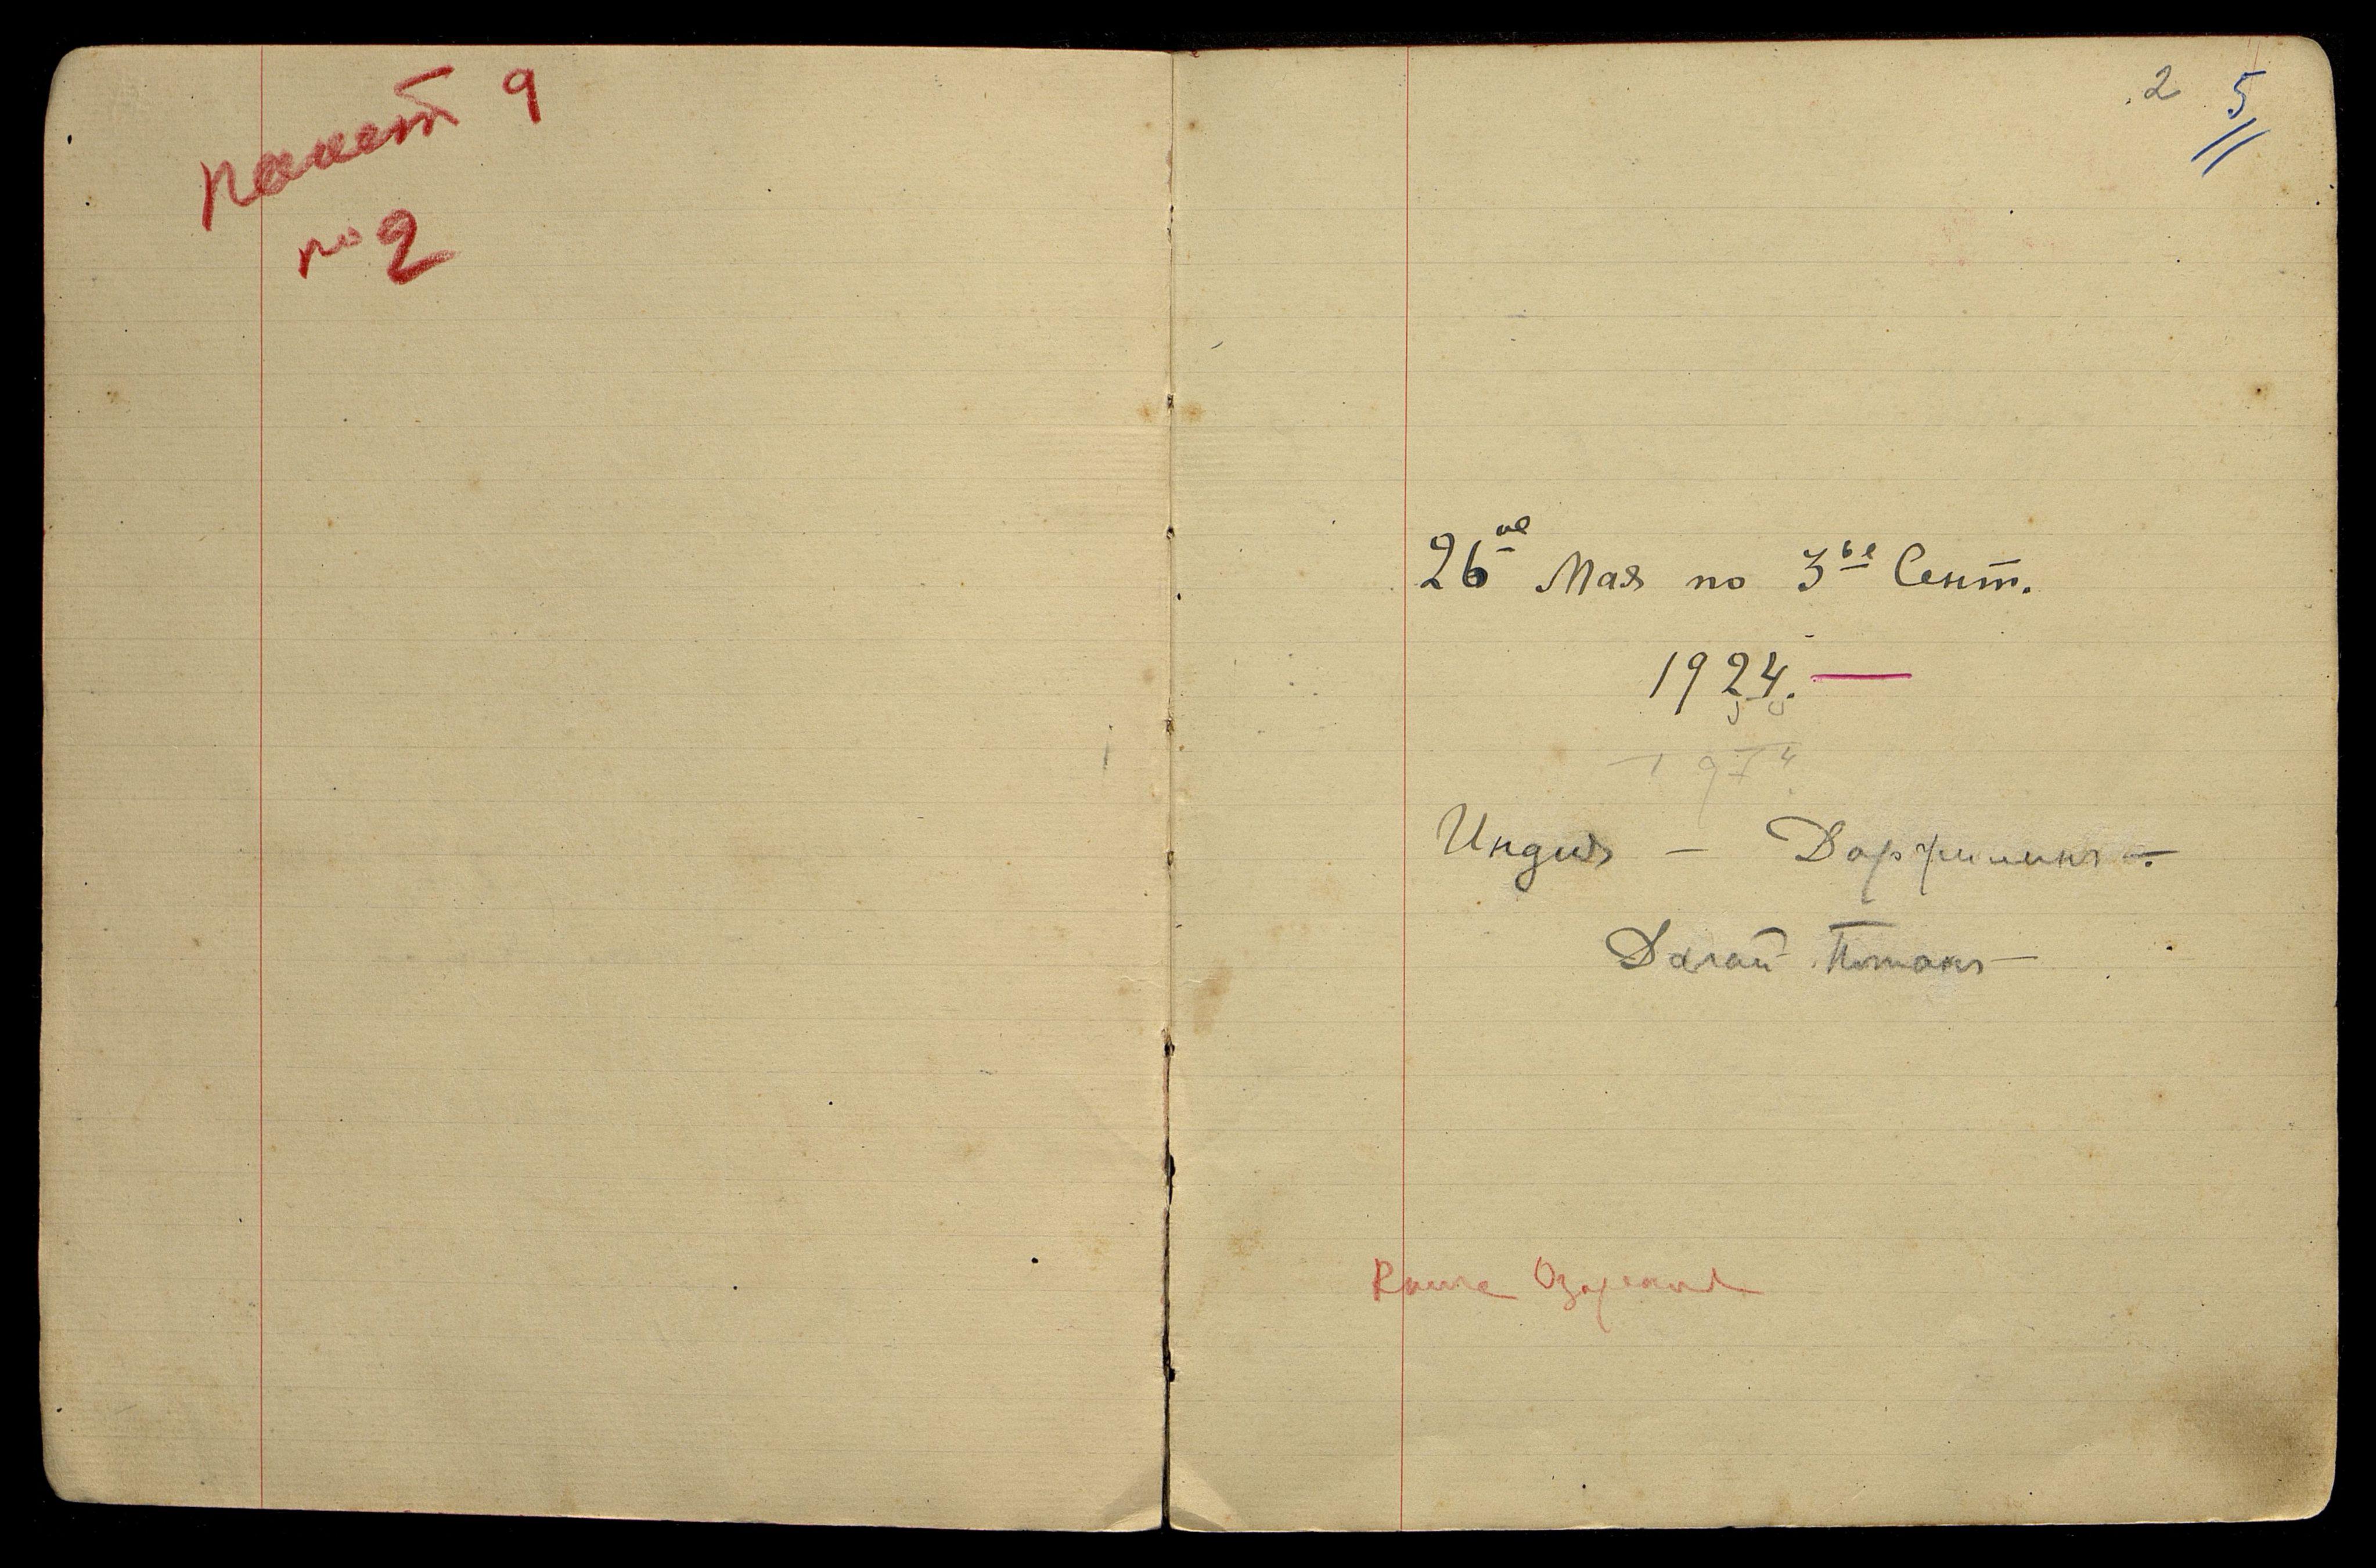 пакет 9
№ 2
2 5
26ое Мая по 3ье Сент.
1924. —
1924
Индия — Дарджилинг —.
Далай Поташ —
Книга Озарения